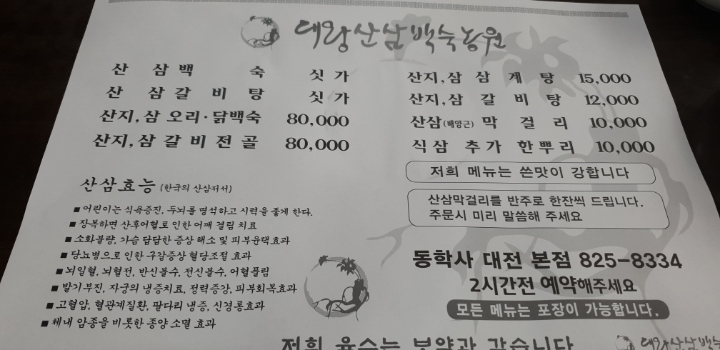 대왕산삼백숙농원
산 삼백 숙 싯 가
산 삼갈비탕 싯 가
산지,삼 오리·닭백숙 80,000
산지,삼 갈비전골 80,000
산지,삼 삼 계 탕 15,000
산지,삼 갈 비 탕 12,000
산삼(배양근) 막 걸 리 10,000
식삼 추가 한뿌리 10,000
저희 메뉴는 쓴맛이 강합니다
산삼막걸리를 반주로 한잔씩 드립니다.
주문시 미리 말씀해 주세요
산삼효능 (한국의 산삼저서)
■ 어린이는 식욕증진, 두뇌를 명석하고 시력을 좋게 한다.
■ 장복하면 산후어혈로 인한 어깨 결림 치료
■ 소화불량, 가슴 답답한 증상 해소 및 피부윤택효과
■ 당뇨병으로 인한 구갈증상 혈당조절 효과
■ 뇌일혈, 뇌혈전, 반신불수, 전신불수, 어혈풀림
■ 발기부진, 자궁의 냉증치료, 정력증강, 피부회복효과
■ 고혈압, 혈관계질환, 팔다리 냉증, 신경통효과
■ 체내 암종을 비롯한 종양 소멸 효과
동학사 대전 본점 825-8334
2시간전 예약해주세요
모든 메뉴는 포장이 가능합니다.
저희 육수는 보약과 같습니다
대왕산삼백숙